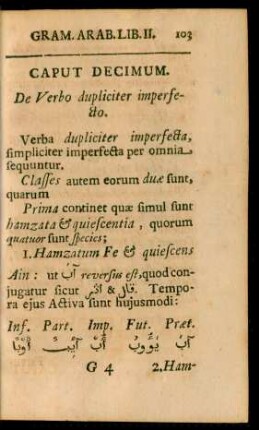 GRAM. ARAB. LIB. II. 103
CAPUT DECIMUM.
De Verbo dupliciter imperfe-
cto.
Verba dupliciter imperfecta,
simpliciter imperfecta per omnia
sequuntur.
Classes autem eorum duæ sunt,
quarum
Prima continet quæ simul sunt
hamzata & quiescentia, quorum
quatuor sunt species;
1. Hamzatum Fe & quiescens
Ain: ut آبَ reversus est, quod con-
jugatur sicut قال & . Tempo-
ra ejus Activa sunt hujusmodi:
Inf. Part. Imp. Fut. Præt.
آبَ يَؤُوبُ أُبْ آيِبٌ أَوْبًا
G 4 2. Ham-